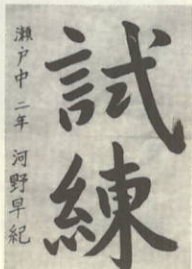 試練
瀬戸中 二年 河野早紀